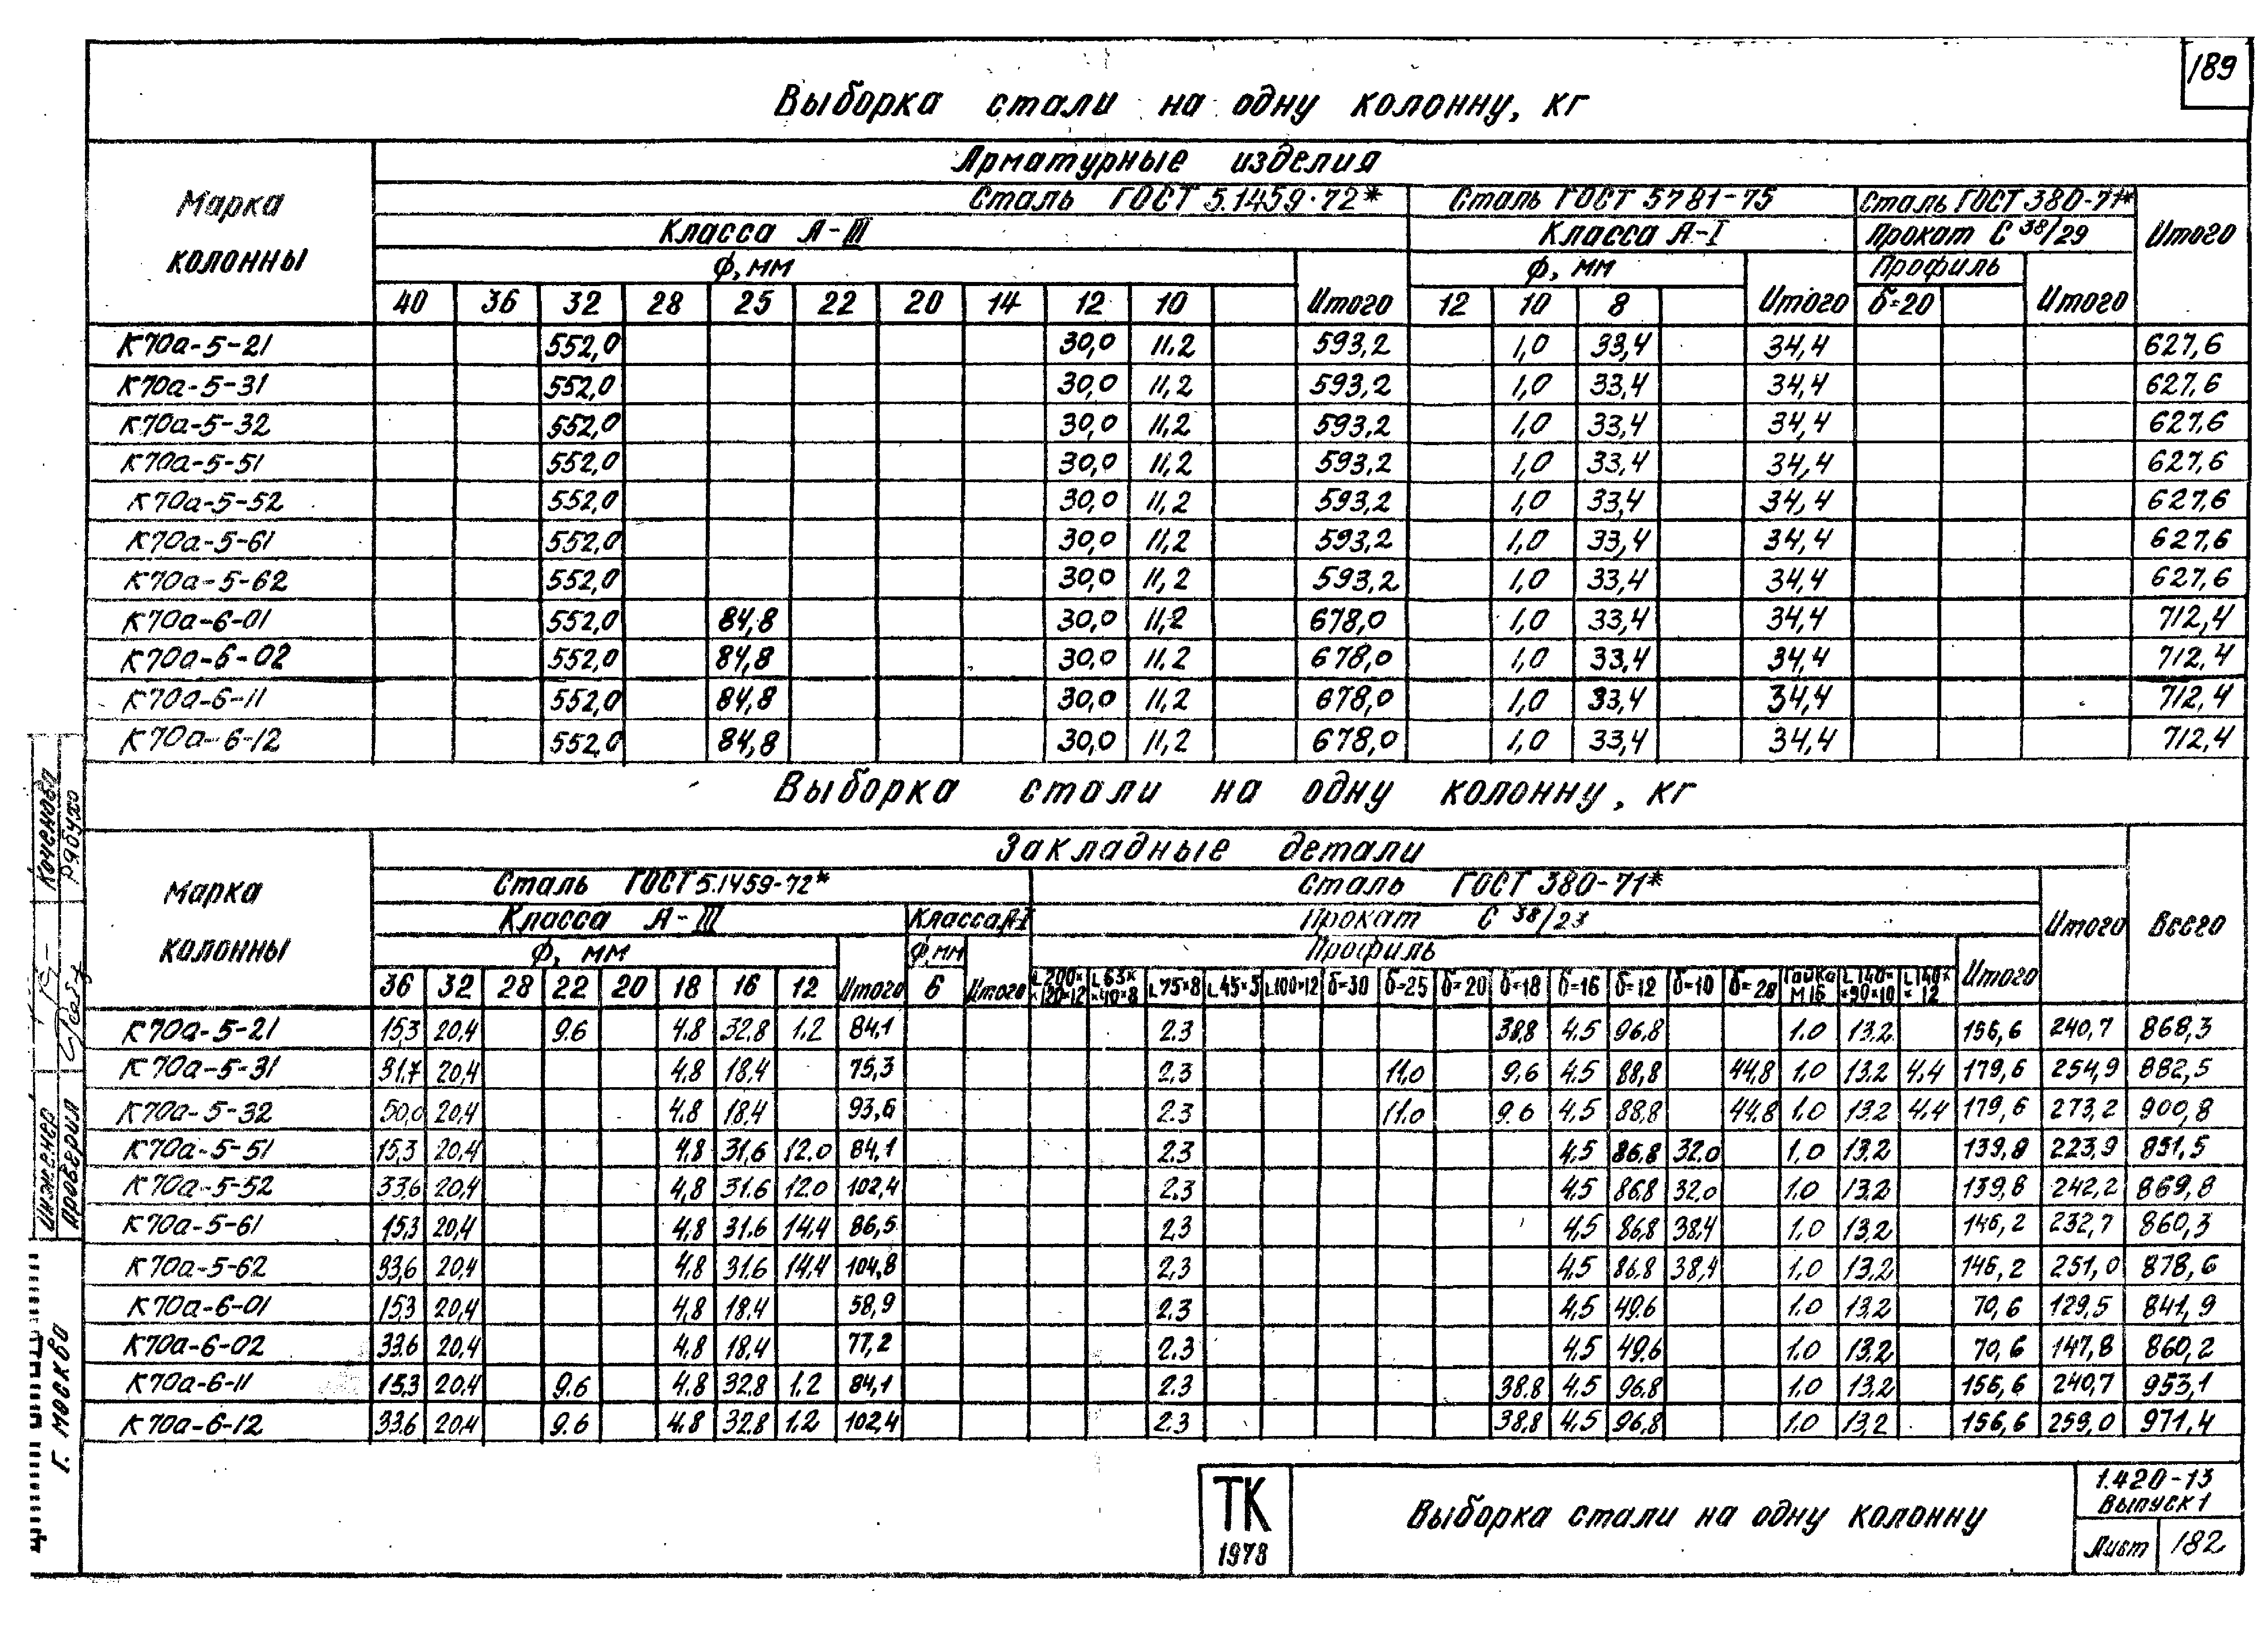 189
Выборка стали на одну колонну, кг
Марка колонны
Арматурные изделия
Сталь ГОСТ 5.1459-72* Сталь ГОСТ 5781-75 Сталь ГОСТ 380-71* Итого
Класса А-III Класса А-I Прокат С 38/29
Ф, мм Итого Ф, мм Итого Профиль Итого
40 36 32 28 25 22 20 14 12 10 12 10 8 б=20
К70а-5-21 552,0 30,0 11,2 593,2 1,0 33,4 34,4 627,6
К70а-5-31 552,0 30,0 11,2 593,2 1,0 33,4 34,4 627,6
К70а-5-32 552,0 30,0 11,2 593,2 1,0 33,4 34,4 627,6
К70а-5-51 552,0 30,0 11,2 593,2 1,0 33,4 34,4 627,6
К70а-5-52 552,0 30,0 11,2 593,2 1,0 33,4 34,4 627,6
К70а-5-61 552,0 30,0 11,2 593,2 1,0 33,4 34,4 627,6
К70а-5-62 552,0 30,0 11,2 593,2 1,0 33,4 34,4 627,6
К70а-6-01 552,0 84,8 30,0 11,2 678,0 1,0 33,4 34,4 712,4
К70а-6-02 552,0 84,8 30,0 11,2 678,0 1,0 33,4 34,4 712,4
К70а-6-11 552,0 84,8 30,0 11,2 678,0 1,0 33,4 34,4 712,4
К70а-6-12 552,0 84,8 30,0 11,2 678,0 1,0 33,4 34,4 712,4
Выборка стали на одну колонну, кг
Марка колонны
Закладные детали
Сталь ГОСТ 5.1459-72* Сталь ГОСТ 380-71* Итого Всего
Класса А-III Класса А-I Прокат С 38/23
Ф, мм Итого Ф, мм Итого Профиль Итого
36 32 28 22 20 18 16 12 6 L200××120×12 L63××40×8 L75×8 L45×5 L100×12 б=30 б=25 б=20 б=18 б=16 б=12 б=10 б=28 Гайка М16 L140××90×10 L140××12
К70а-5-21 15,3 20,4 9.6 4.8 32.8 1.2 84,1 2.3 38.8 4.5 96.8 1.0 13.2 156,6 240,7 868,3
К70а-5-31 31.7 20,4 4.8 18.4 75,3 2.3 11.0 9,6 4.5 88,8 44,8 1,0 13.2 4.4 179,6 254,9 882,5
К70а-5-32 50,0 20,4 4.8 18.4 93,6 2.3 11.0 9.6 4,5 88.8 44.8 1.0 13.2 4.4 179,6 273,2 900,8
К70а-5-51 15,3 20.4 4.8 31,6 12.0 84,1 2.3 4,5 86,8 32.0 1,0 13.2 139,8 223,9 851,5
К70а-5-52 33,6 20,4 4,8 31.6 12.0 102,4 2.3 4.5 86.8 32.0 1.0 13.2 139,8 242,2 869,8
К70а-5-61 15,3 20,4 4,8 31.6 14,4 86,5 2,3 4,5 86,8 38,4 1.0 13,2 146,2 232,7 860,3
К70а-5-62 33,6 20,4 4,8 31.6 14,4 104,8 2,3 4,5 86.8 38,4 1.0 13,2 146,2 251,0 878,6
К70а-6-01 15,3 20,4 4,8 18.4 58,9 2.3 4,5 49.6 1.0 13,2 70,6 129,5 841,9
К70а-6-02 33.6 20,4 4.8 18.4 77,2 2.3 4,5 49,6 1.0 13.2 70,6 147,8 860,2
К70а-6-11 15,3 20,4 9.6 4.8 32.8 1.2 84,1 2.3 38.8 4.5 96.8 1.0 13,2 156,6 240,7 953,1
К70а-6-12 33.6 20,4 9.6 4.8 32.8 1.2 102,4 2.3 38.8 4,5 96.8 1.0 13,2 156,6 259,0 971,4
Инженер Коченова
Проверил Рябухо
г. Москва
ТК
1978
Выборка стали на одну колонну
1.420-13
Выпуск 1
Лист 182